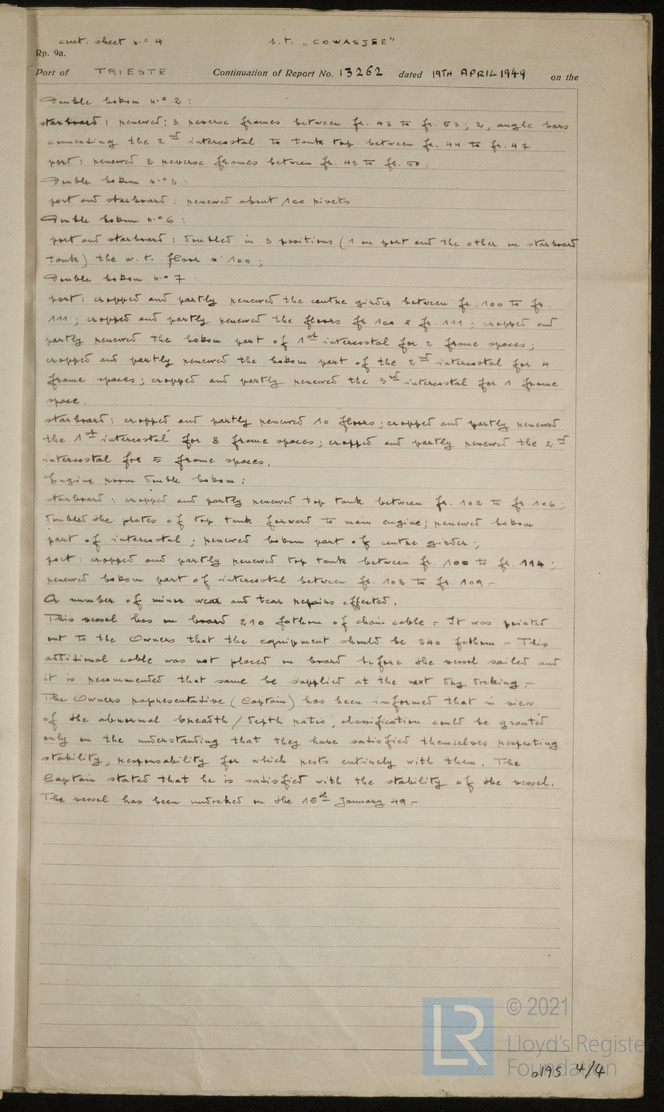 cont. sheet n.o 4 s.t. „COWASJEE"
Rp. 9a.
Port of TRIESTE Continuation of Report No. 13262 dated 19TH APRIL 1949 on the
Double bottom n.o 2 :
starboard : renewed : 3 reverse frames between fr. 43 to fr. 53 ; 2, angle bars
connecting the 2nd intercostal to tank top between fr. 44 to fr. 47
port : renewed 3 reverse frames between fr. 43 to fr. 50.
Double bottom n.o 3 :
port and starboard : renewed about 100 rivets
Double bottom n.o 6 :
port and starboard : doubled in 3 positions ( 1 on port and the other on starboard
tank ) the w.t. floor n° 100 ;
Double bottom n.o 7
port : cropped and partly renewed the centre girder between fr. 100 to fr.
111 ; cropped and partly renewed the floors fr 100 & fr. 111 ; cropped and
partly renewed the bottom part of 1st intercostal for 2 frame spaces ;
cropped and partly renewed the bottom part of the 2nd intercostal for 4
frame spaces ; cropped and partly renewed the 3rd intercostal for 1 frame
space.
starboard : cropped and partly renewed 10 floors ; cropped and partly renewed
the 1st intercostal for 8 frame spaces ; cropped and partly renewed the 2nd
intercostal for 5 frame spaces.
Engine room double bottom :
starboard : cropped and partly renewed top tank between fr. 102 to fr 106 ;
doubled the plates of top tank forward to main engine ; renewed bottom
part of intercostal ; renewed bottom part of centre girder ;
port : cropped and partly renewed top tank between fr. 100 to fr. 114 ;
renewed bottom part of intercostal between fr. 103 to fr. 109 .-
A number of minor wear and tear repairs effected.
This vessel has on board 210 fathom of chain cable .- It was pointed
out to the Owners that the equipment should be 240 fathom - This
additional cable was not placed on board before the vessel sailed and
it is recommended that same be supplied at the next Dry Docking .-
The Owners representative ( Captain ) has been informed that in view
of the abnormal breadth / depth ratio, classification could be granted
only on the understanding that they have satisfied themselves respecting
stability, responsability for which rests entirely with them. The
Captain stated that he is satisfied with the stability of the vessel.
The vessel has been undocked on the 15th January 49 .-
LR © 2021
Lloyd's Register
Foundation
0195 4/4